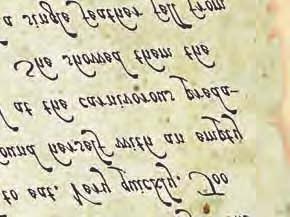 to eat. Very quickly. Too
ound herself with an empty
at the carnivorous preda-
She showed them the
a single feather fell from